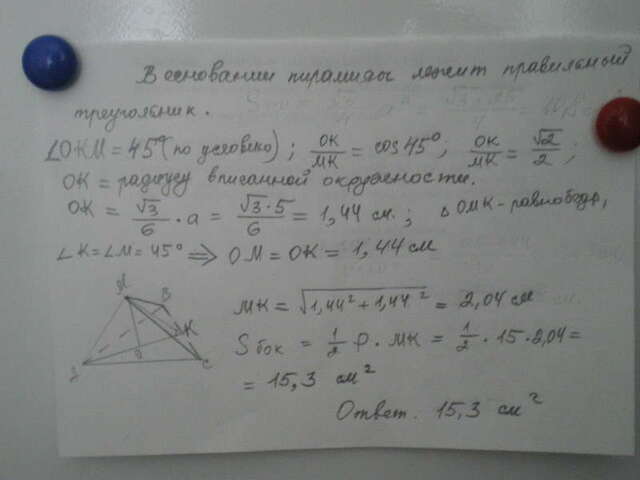 В основании пирамиды лежит правильный
треугольник.
∠OKM = 45° (по условию) ; OK/MK = cos 45° ; OK/MK = √2/2 ;
OK = радиусу вписанной окружности.
OK = √3/6 · a = √3·5/6 = 1,44 см. ; Δ OMK - равнобедр,
∠K = ∠M = 45° ⟹ OM = OK = 1,44 см
MK = √1,44² + 1,44² = 2,04 см
S бок = 1/2 P · MK = 1/2 · 15 · 2,04 =
= 15,3 см²
Ответ. 15,3 см²
M
B
K
O
C